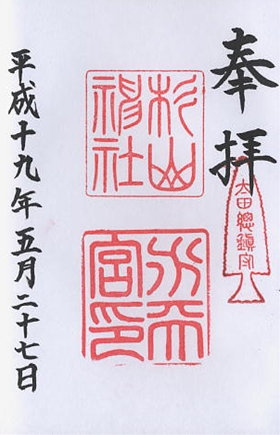 奉拝
太田總鎮守
杉山神社
水天宮印
平成十九年五月二十七日